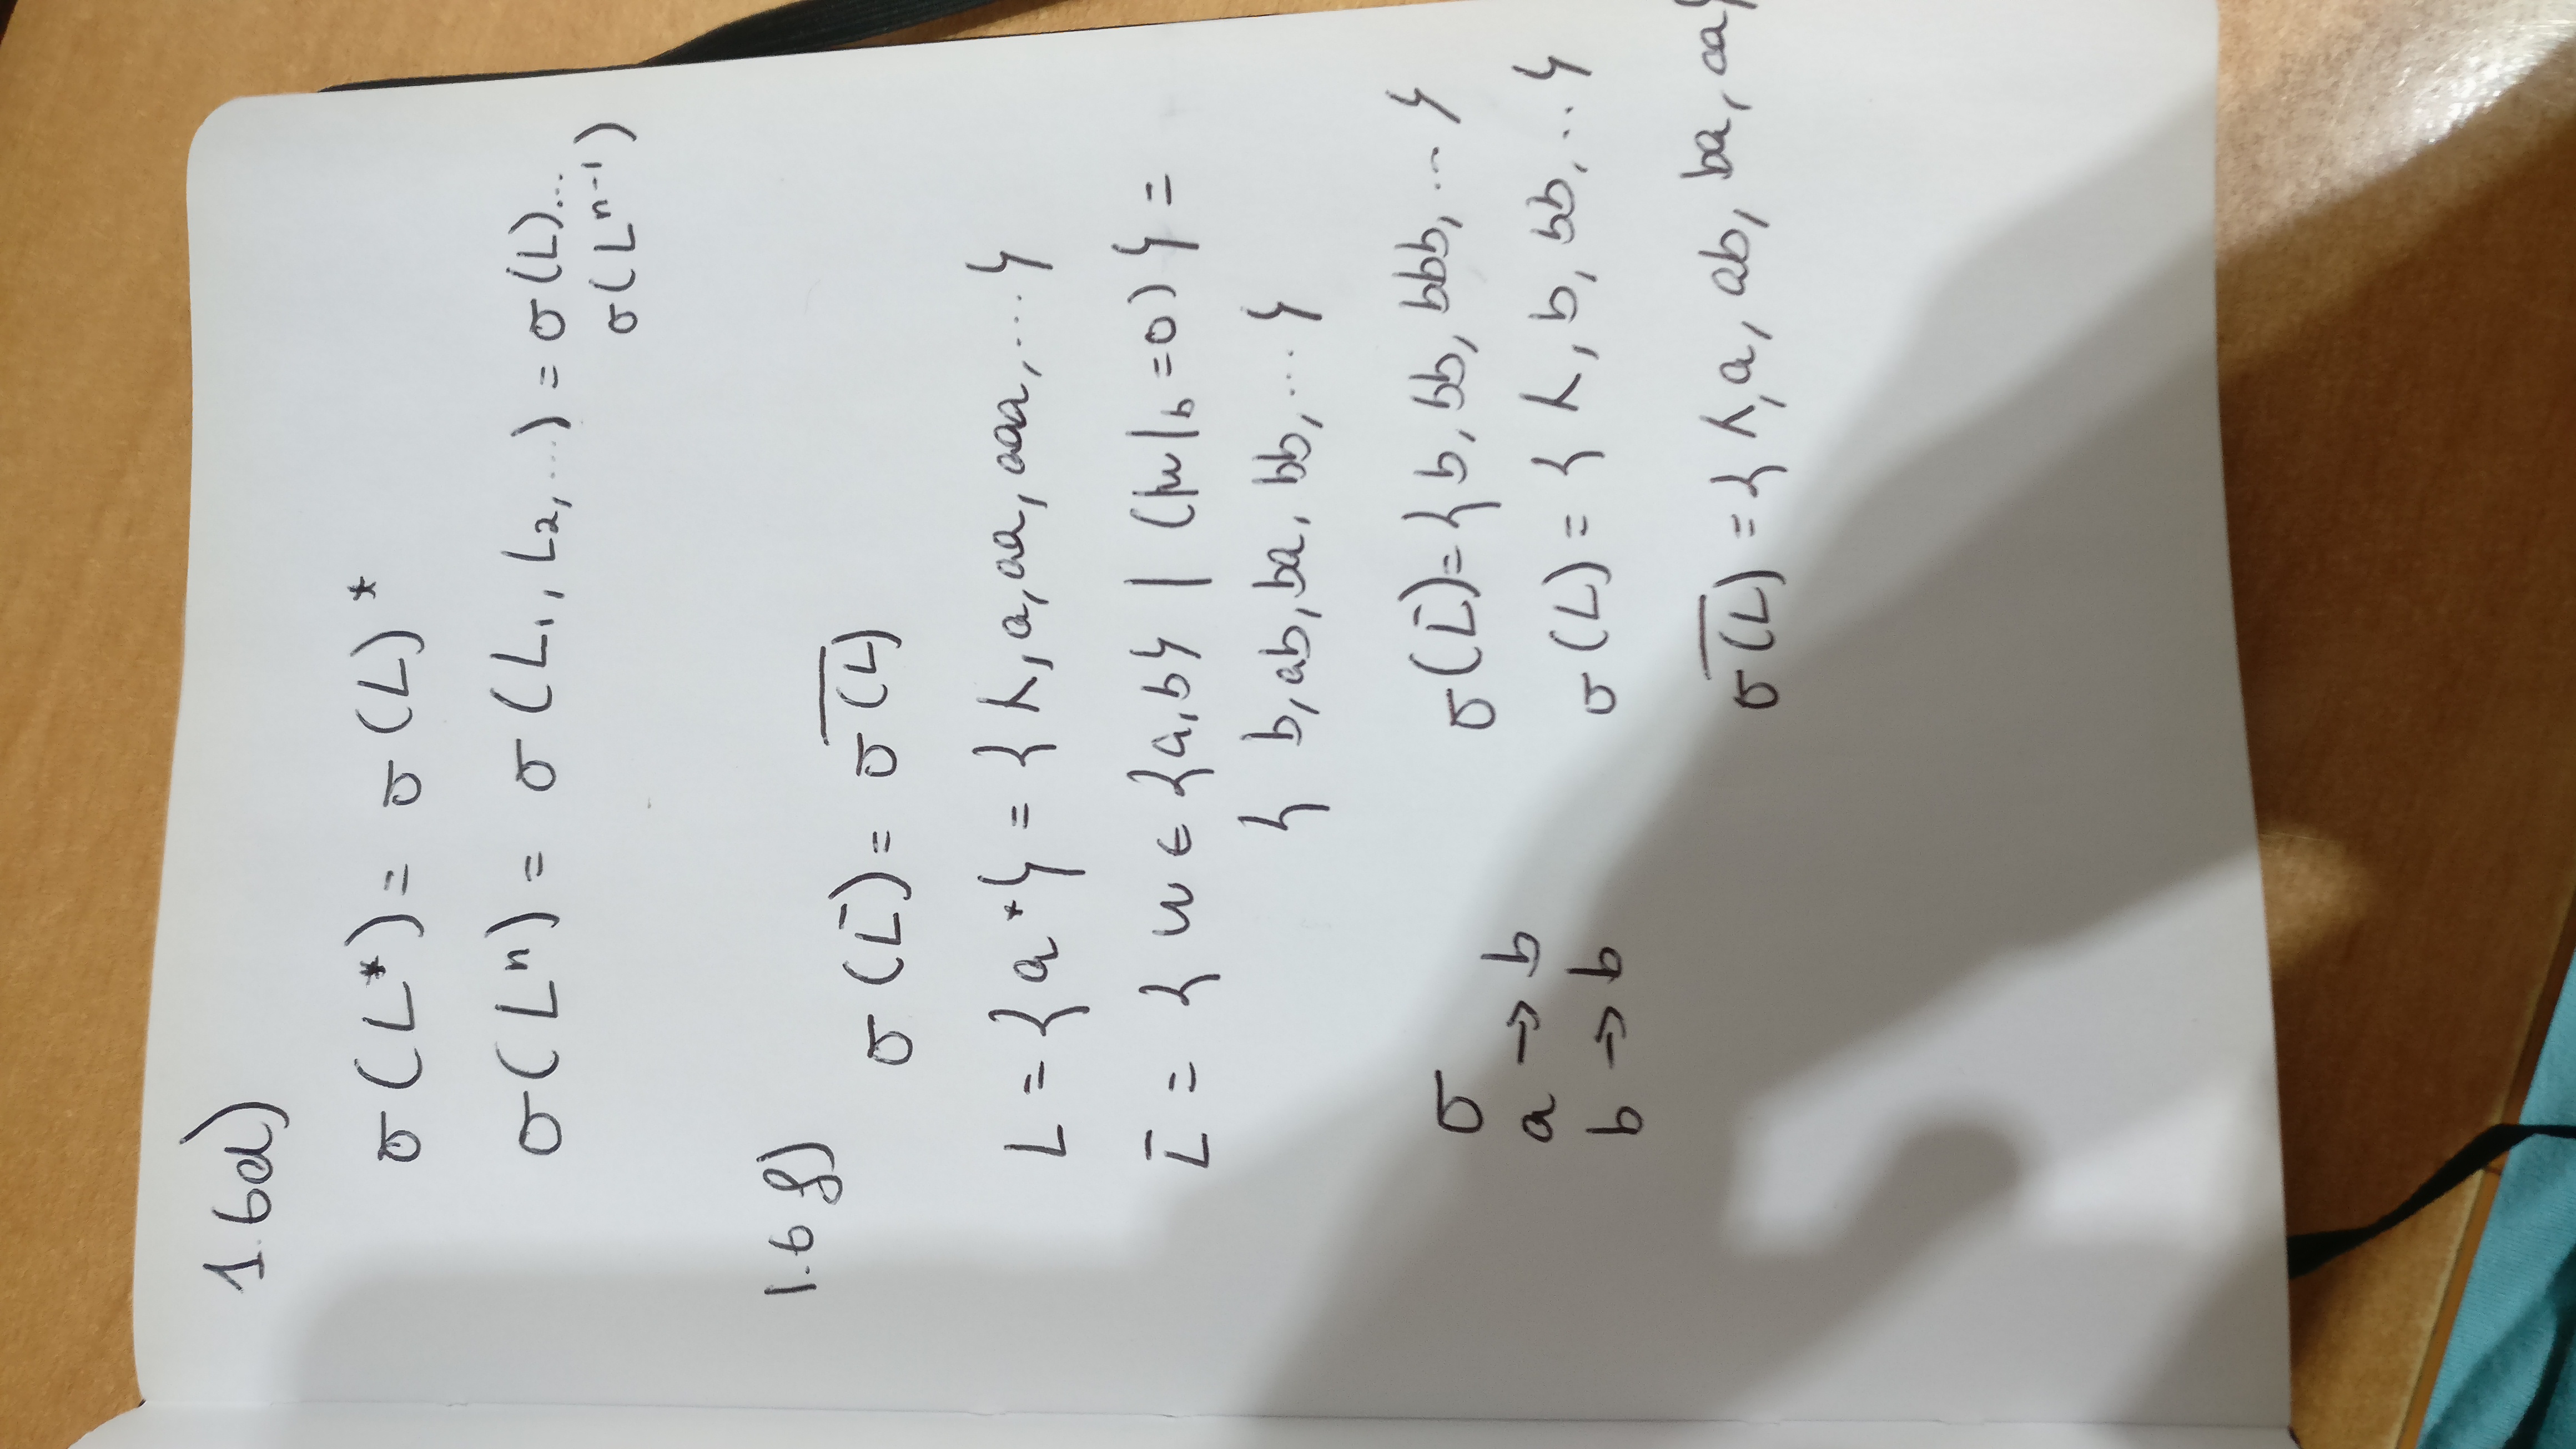 1.6d)
σ(L*) = σ(L)*
σ(Lⁿ) = σ(L₁, L₂, ...) = σ(L)...
σ(Lⁿ⁻¹)
1.6 f)
σ(L̅) = σ\overline{(L)}
L = {a*} = {λ, a, aa, aaa, ... }
L̅ = { w ∈ {a,b} | (|w|_b = 0) } =
{ b, ab, ba, bb, ... }
σ(L̅) = { b, bb, bbb, ... }
σ(L) = { λ, b, bb, ... }
σ\overline{(L)} = { λ, a, ab, ba, aa}
σ
a → b
b → b